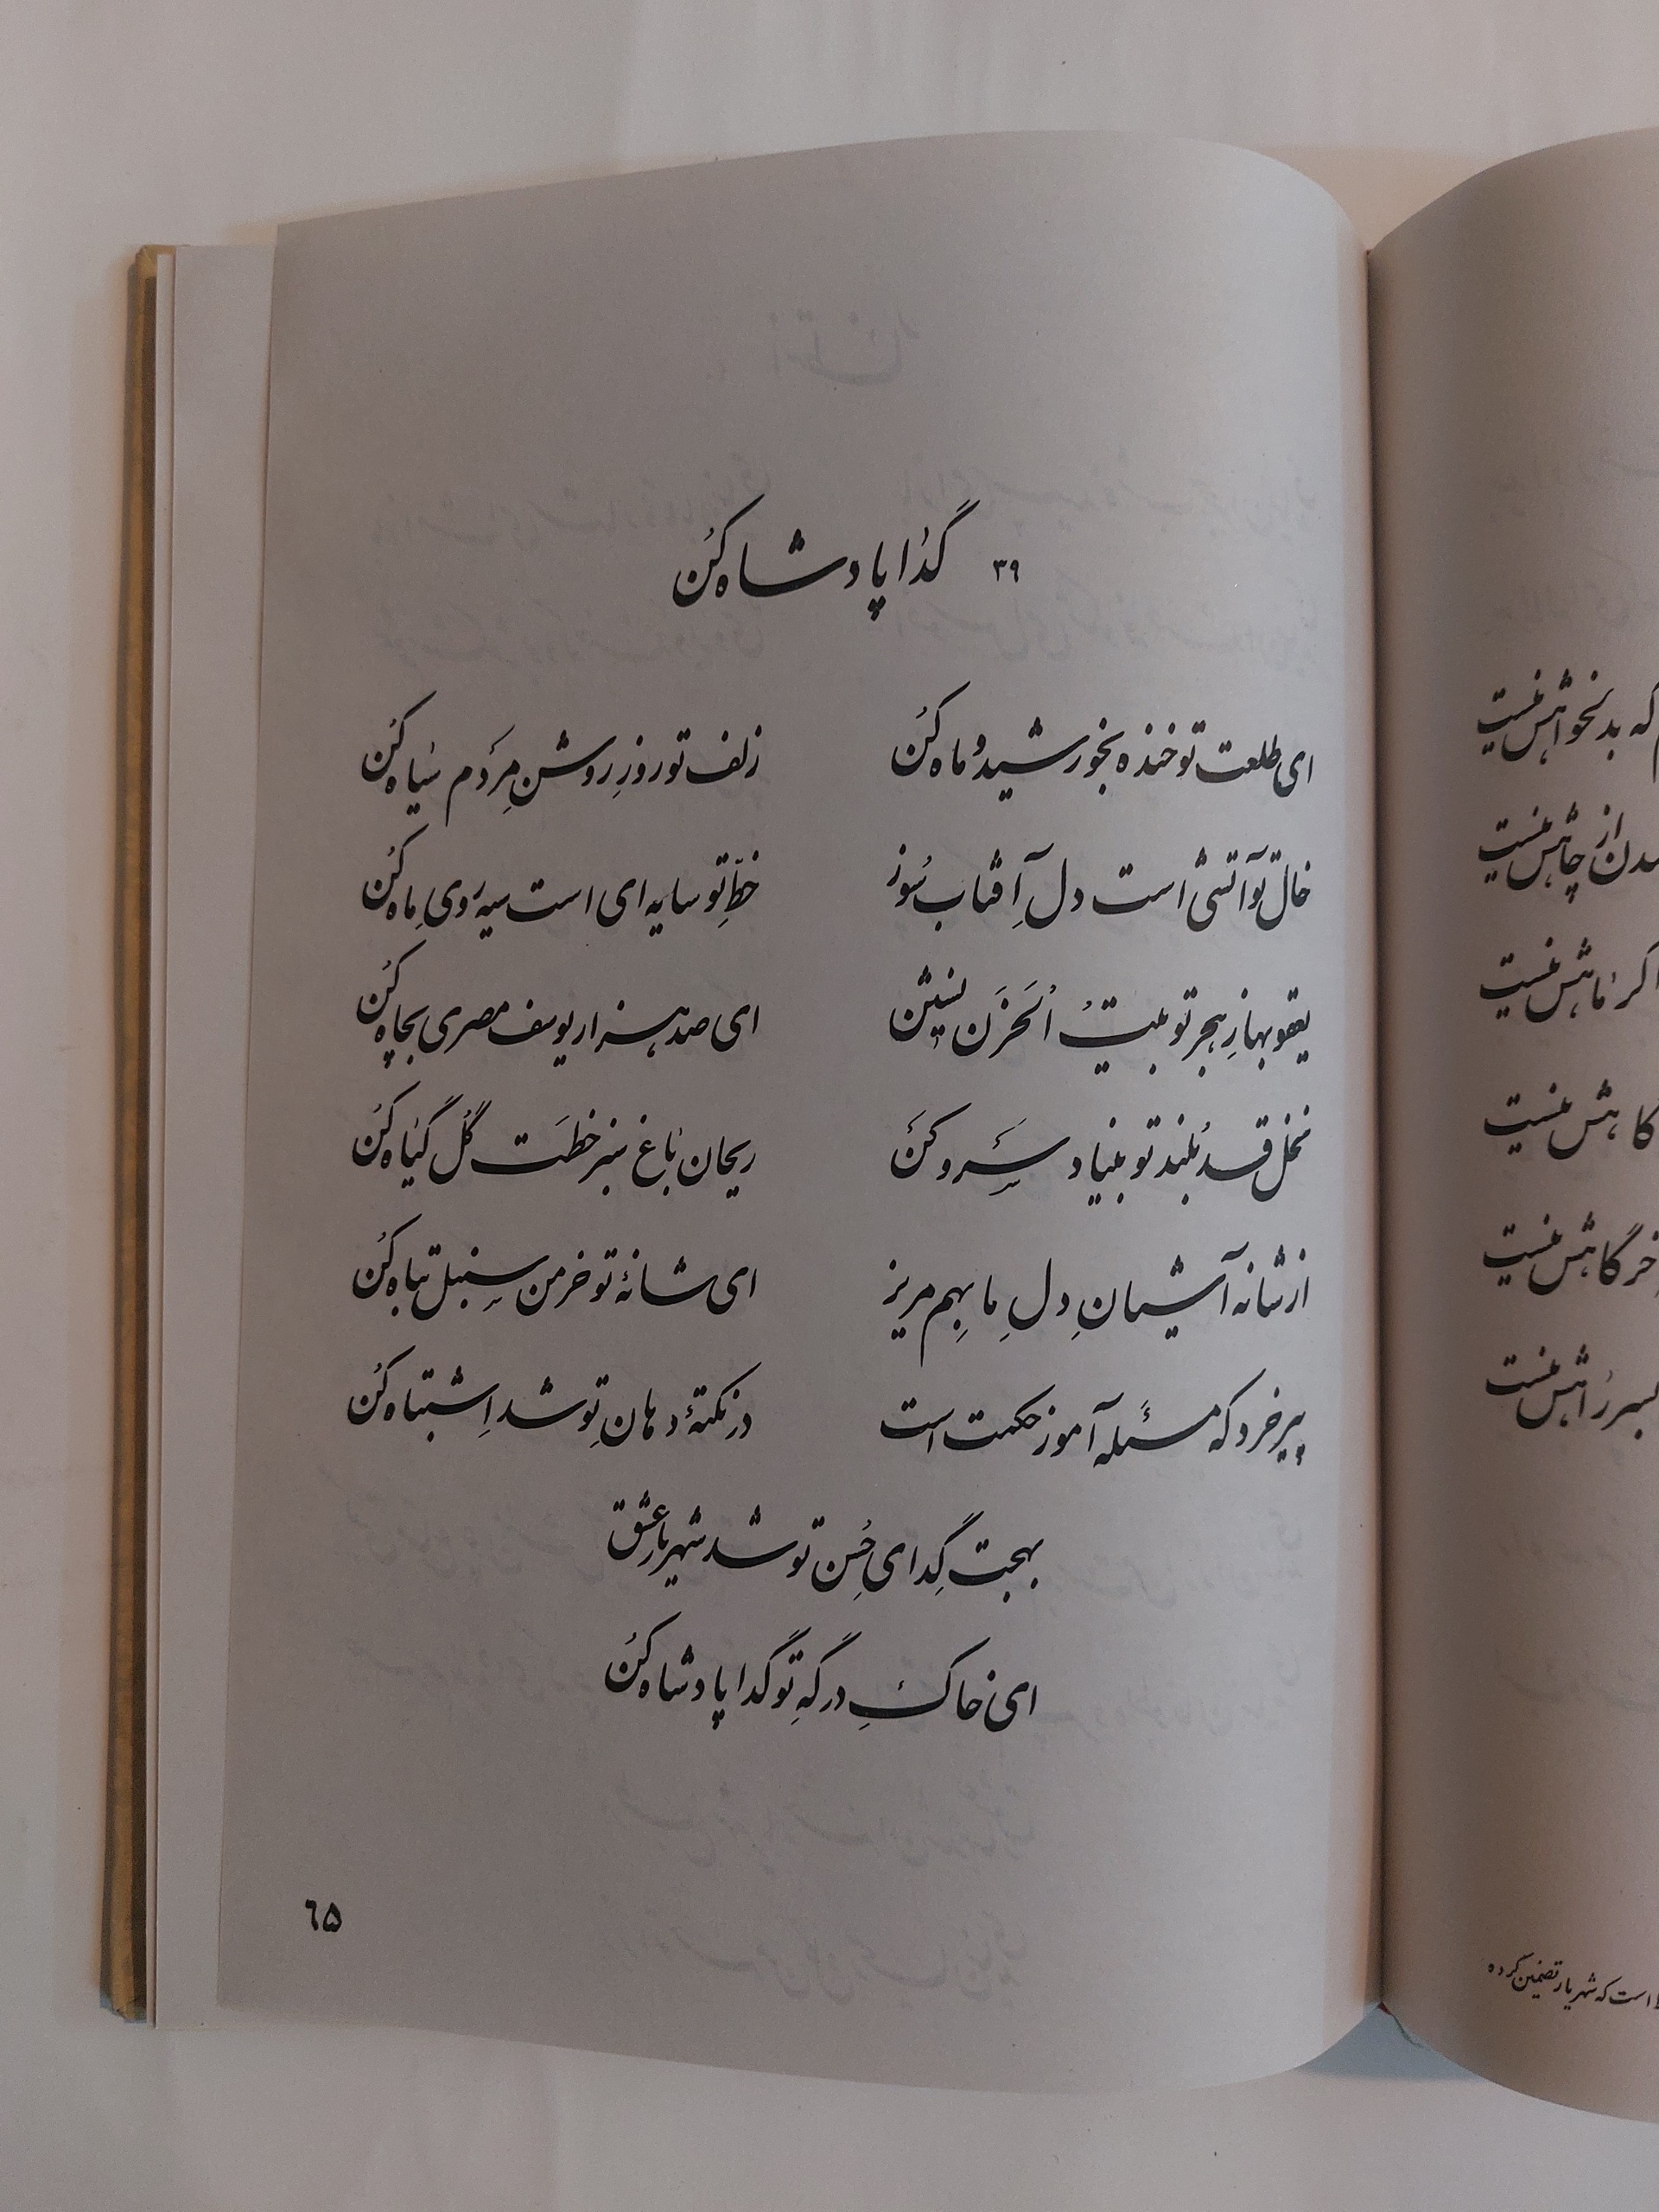 ۳۹ گدا پادشاه کُن
ای طلعت تو خنده بخورشید و ماه کُن
زلف تو روزِ روشنِ مردم سیاه کُن
خال تو آتشی است دل آفتاب سُوز
خطِّ تو سایه ای است سیه رویِ ماه کُن
یعقوبها زِ هجر تو بیتُ اَلحَزَن نشین
ای صد هزار یوسف مصری بچاه کُن
نخل قد بُلند تو بنیاد سَرو کَن
ریحان باغ سبز خطَت گُل گیاه کُن
از شانه آشیانِ دلِ ما بِهم مریز
ای شانهٔ تو خرمن سنبل تباه کُن
پیر خرد که مسئله آموز حکمت است
در نکتهٔ دهانِ تو شد اِشتباه کُن
بهجت گِدای حُسنِ تو شد شهریارِ عشق
ای خاکِ درگهِ تو گدا پادشاه کُن
٦۵
که بدنخواهش نیست
از چاهش نیست
اگر ماهش نیست
کاهش نیست
خرگاهش نیست
است که شهریار تضمین کرده